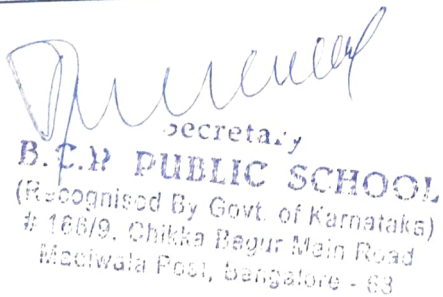 Secretary
B.C.R PUBLIC SCHOOL
(Recognised By Govt. of Karnataka)
# 166/9. Chikka Begur Main Road
Post, Bangalore - 68